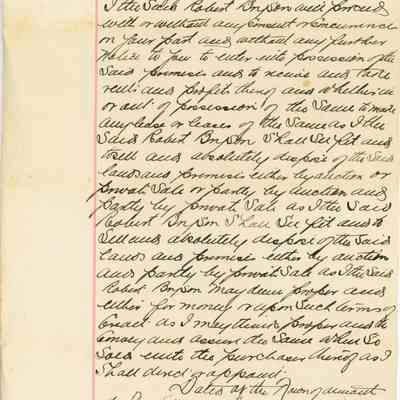 I the said Robert Bryson will proceed
with or without any consent or concurrence
on your part and without any further
notice to you to enter into possession of the
said premises and to receive and take
rents and profits thereof and whether in
or out of possession of the same to make
any lease or leases of the same as I the
said Robert Bryson shall see fit and
to sell and absolutely dispose of the said
lands and premises either by auction or
private sale or partly by auction and
partly by private sale as I the said
Robert Bryson shall see fit and to
sell and absolutely dispose of the said
lands and premises either by auction
and partly by private sale as I the said
Robert Bryson may deem proper and
either for money or upon such terms of
credit as I may think proper and to
convey and assure the same when so
sold unto the purchaser thereof as I
shall direct or appoint.
Dated at the Town of